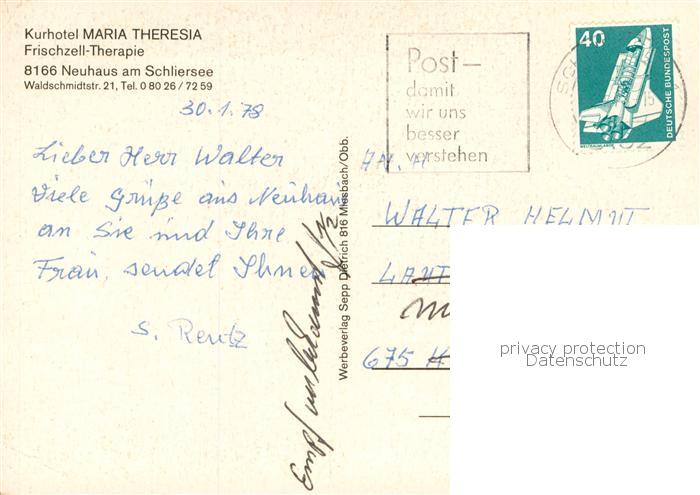 Kurhotel MARIA THERESIA
Frischzell-Therapie
8166 Neuhaus am Schliersee
Waldschmidtstr. 21, Tel. 0 80 26 / 72 59
30.1.78
Lieber Herr Walter
Viele Grüße aus Neuhaus
an Sie und Ihre
Frau, sendet Ihnen
S. Rentz
Werbeverlag Sepp Dietrich 816 Miesbach/Obb.
Post –
damit
wir uns
besser
verstehen
40
DEUTSCHE BUNDESPOST
WELTRAUMLABOR
WALTER HELMUT
LAUT
675
privacy protection
Datenschutz